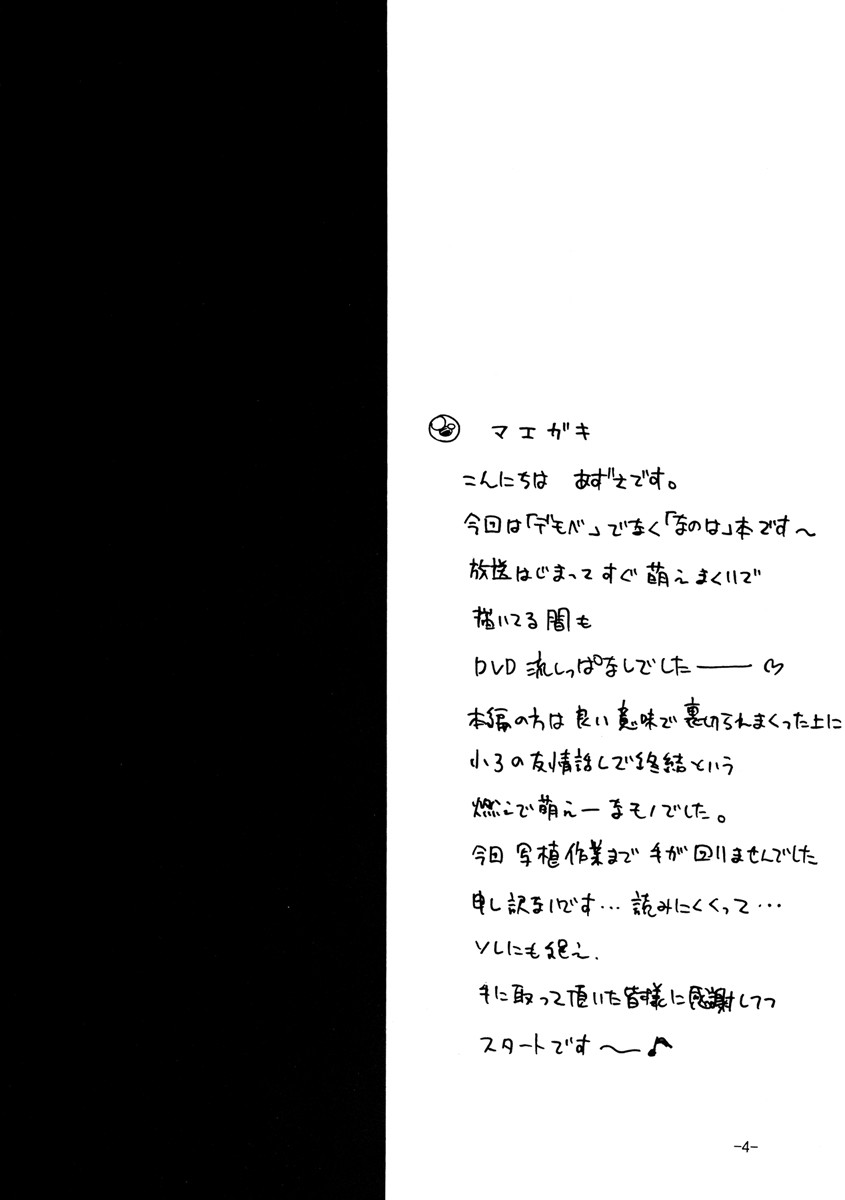 マエガキ
こんにちは あずえです。
今回は「デモベ」でなく「なのは」本です〜
放送はじまってすぐ萌えまくりで
描いてる間も
DVD 流しっぱなしでした——♡
本編の方は良い意味で裏切られまくった上に
小3の友情話しで終結という
燃えで萌えーなモノでした。
今回 写植作業まで手が回りませんでした
申し訳ないです… 読みにくくって…
ソレにも絶え、
手に取って頂いた皆様に感謝してつ
スタートです〜♪
-4-